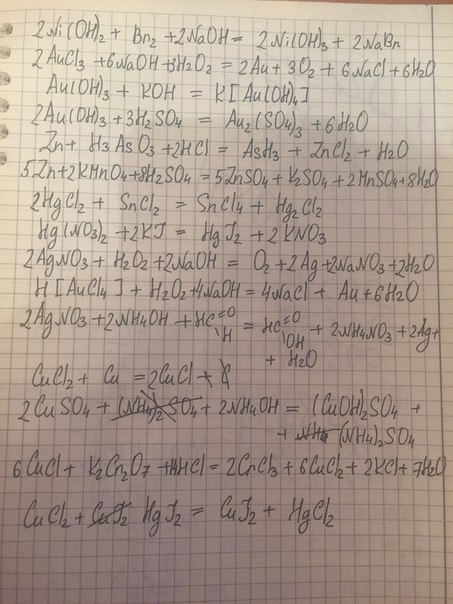 2Ni(OH)2 + Br2 + 2NaOH = 2Ni(OH)3 + 2NaBr
2AuCl3 + 6NaOH + 3H2O2 = 2Au + 3O2 + 6NaCl + 6H2O
Au(OH)3 + KOH = K[Au(OH)4]
2Au(OH)3 + 3H2SO4 = Au2(SO4)3 + 6H2O
Zn + H3AsO3 + 2HCl = AsH3 + ZnCl2 + H2O
5Zn + 2KMnO4 + 8H2SO4 = 5ZnSO4 + K2SO4 + 2MnSO4 + 8H2O
2HgCl2 + SnCl2 = SnCl4 + Hg2Cl2
Hg(NO3)2 + 2KJ = HgJ2 + 2KNO3
2AgNO3 + H2O2 + 2NaOH = O2 + 2Ag + 2NaNO3 + 2H2O
H[AuCl4] + H2O2 + 4NaOH = 4NaCl + Au + 6H2O
2AgNO3 + 2NH4OH + HC=O = HC=O + 2NH4NO3 + 2Ag +
\H \OH
+ H2O
CuCl2 + Cu = 2CuCl
2CuSO4 + (NH4)2SO4 + 2NH4OH = (CuOH)2SO4 +
+ NH4 (NH4)2SO4
6CuCl + K2Cr2O7 + 14HCl = 2CrCl3 + 6CuCl2 + 2KCl + 7H2O
CuCl2 + CuJ2 HgJ2 = CuJ2 + HgCl2